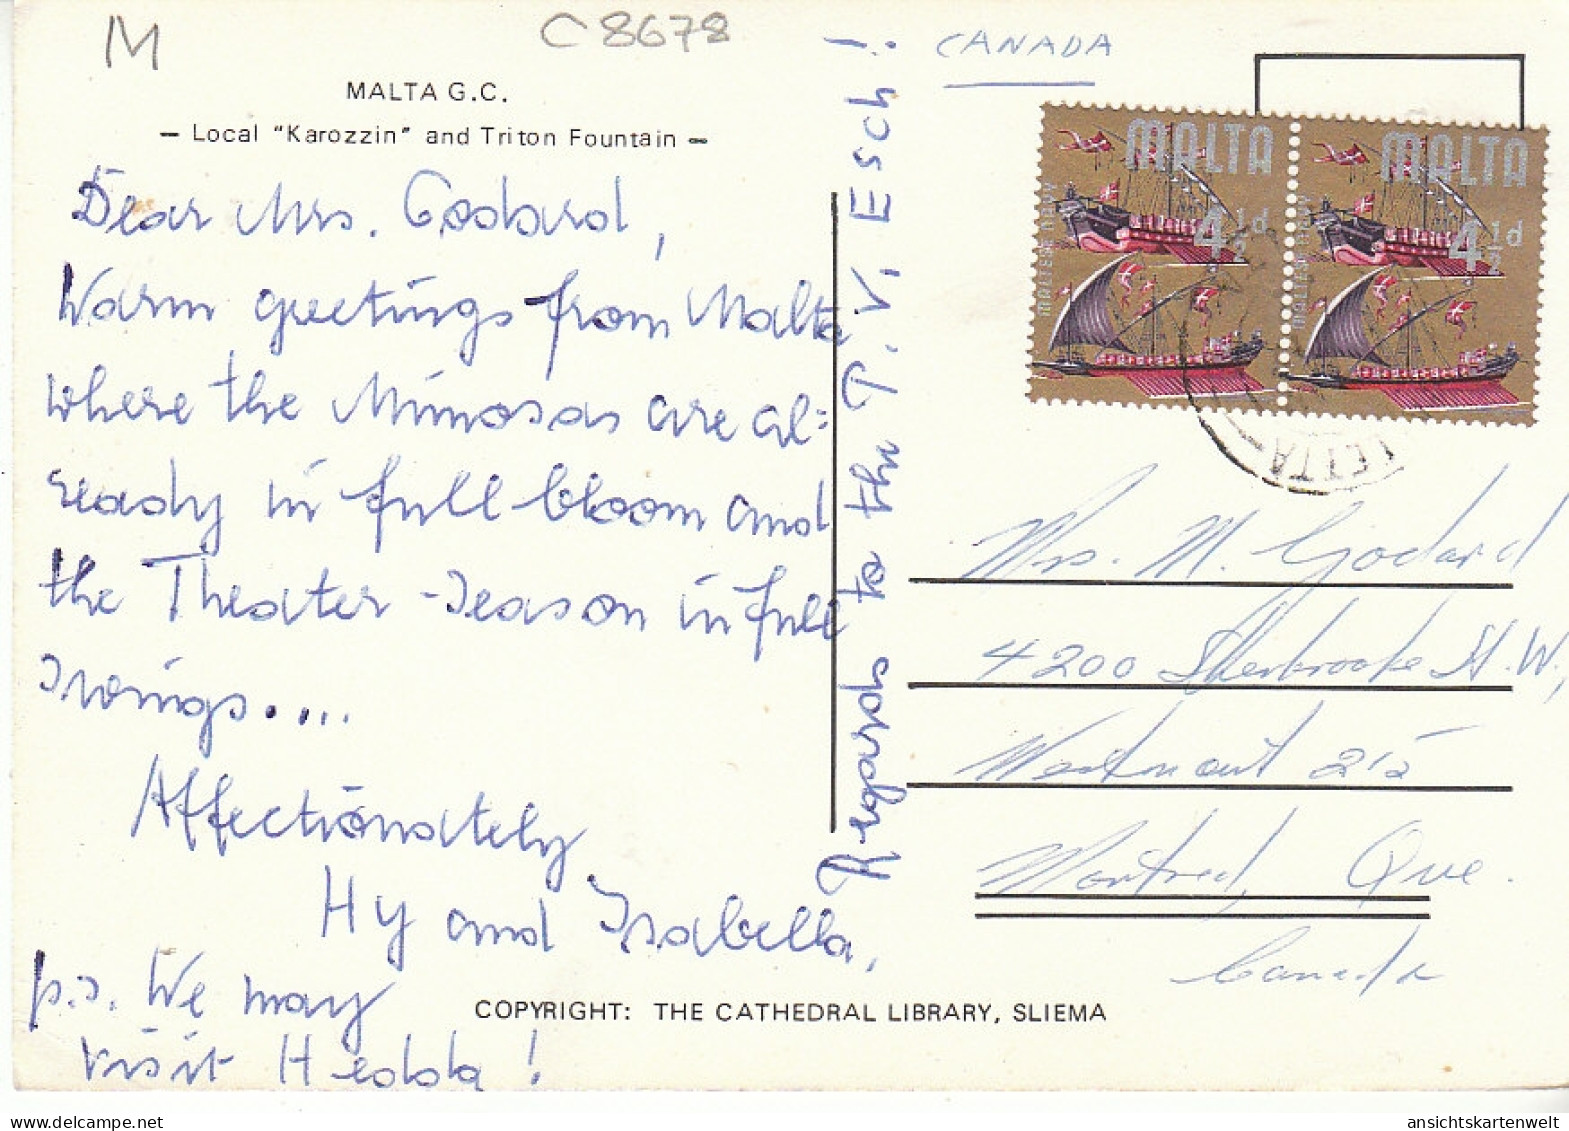 M
C 8678
MALTA G.C.
— Local "Karozzin" and Triton Fountain —
Dear Mrs. Godard,
Warm greetings from Malta
where the Mimosas are al=
ready in full bloom and
the Theater-Season in full
swings.....
Affectionately
Hy and Isabella,
p.s. We may
visit Hedda!
Regards to the P.V. Esch!
CANADA
MALTA
4½d
MALTESE NAVY
MALTA
4½d
MALTESE NAVY
LETTA
Mrs. M. Godard
4200 Sherbrooke St. W,
Westmount 215
Montreal, Que.
Canada
COPYRIGHT: THE CATHEDRAL LIBRARY, SLIEMA
ansichtskartenwelt
www.delcampe.net